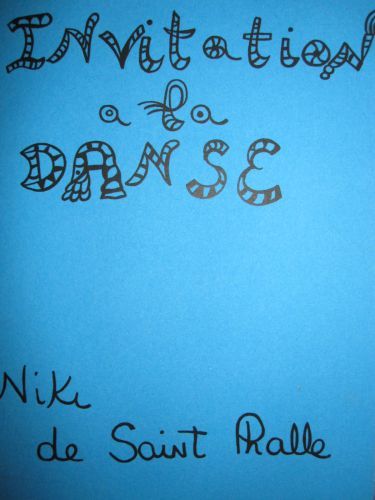 INVitation
a la
DANSE
Niki
de Saint Phalle